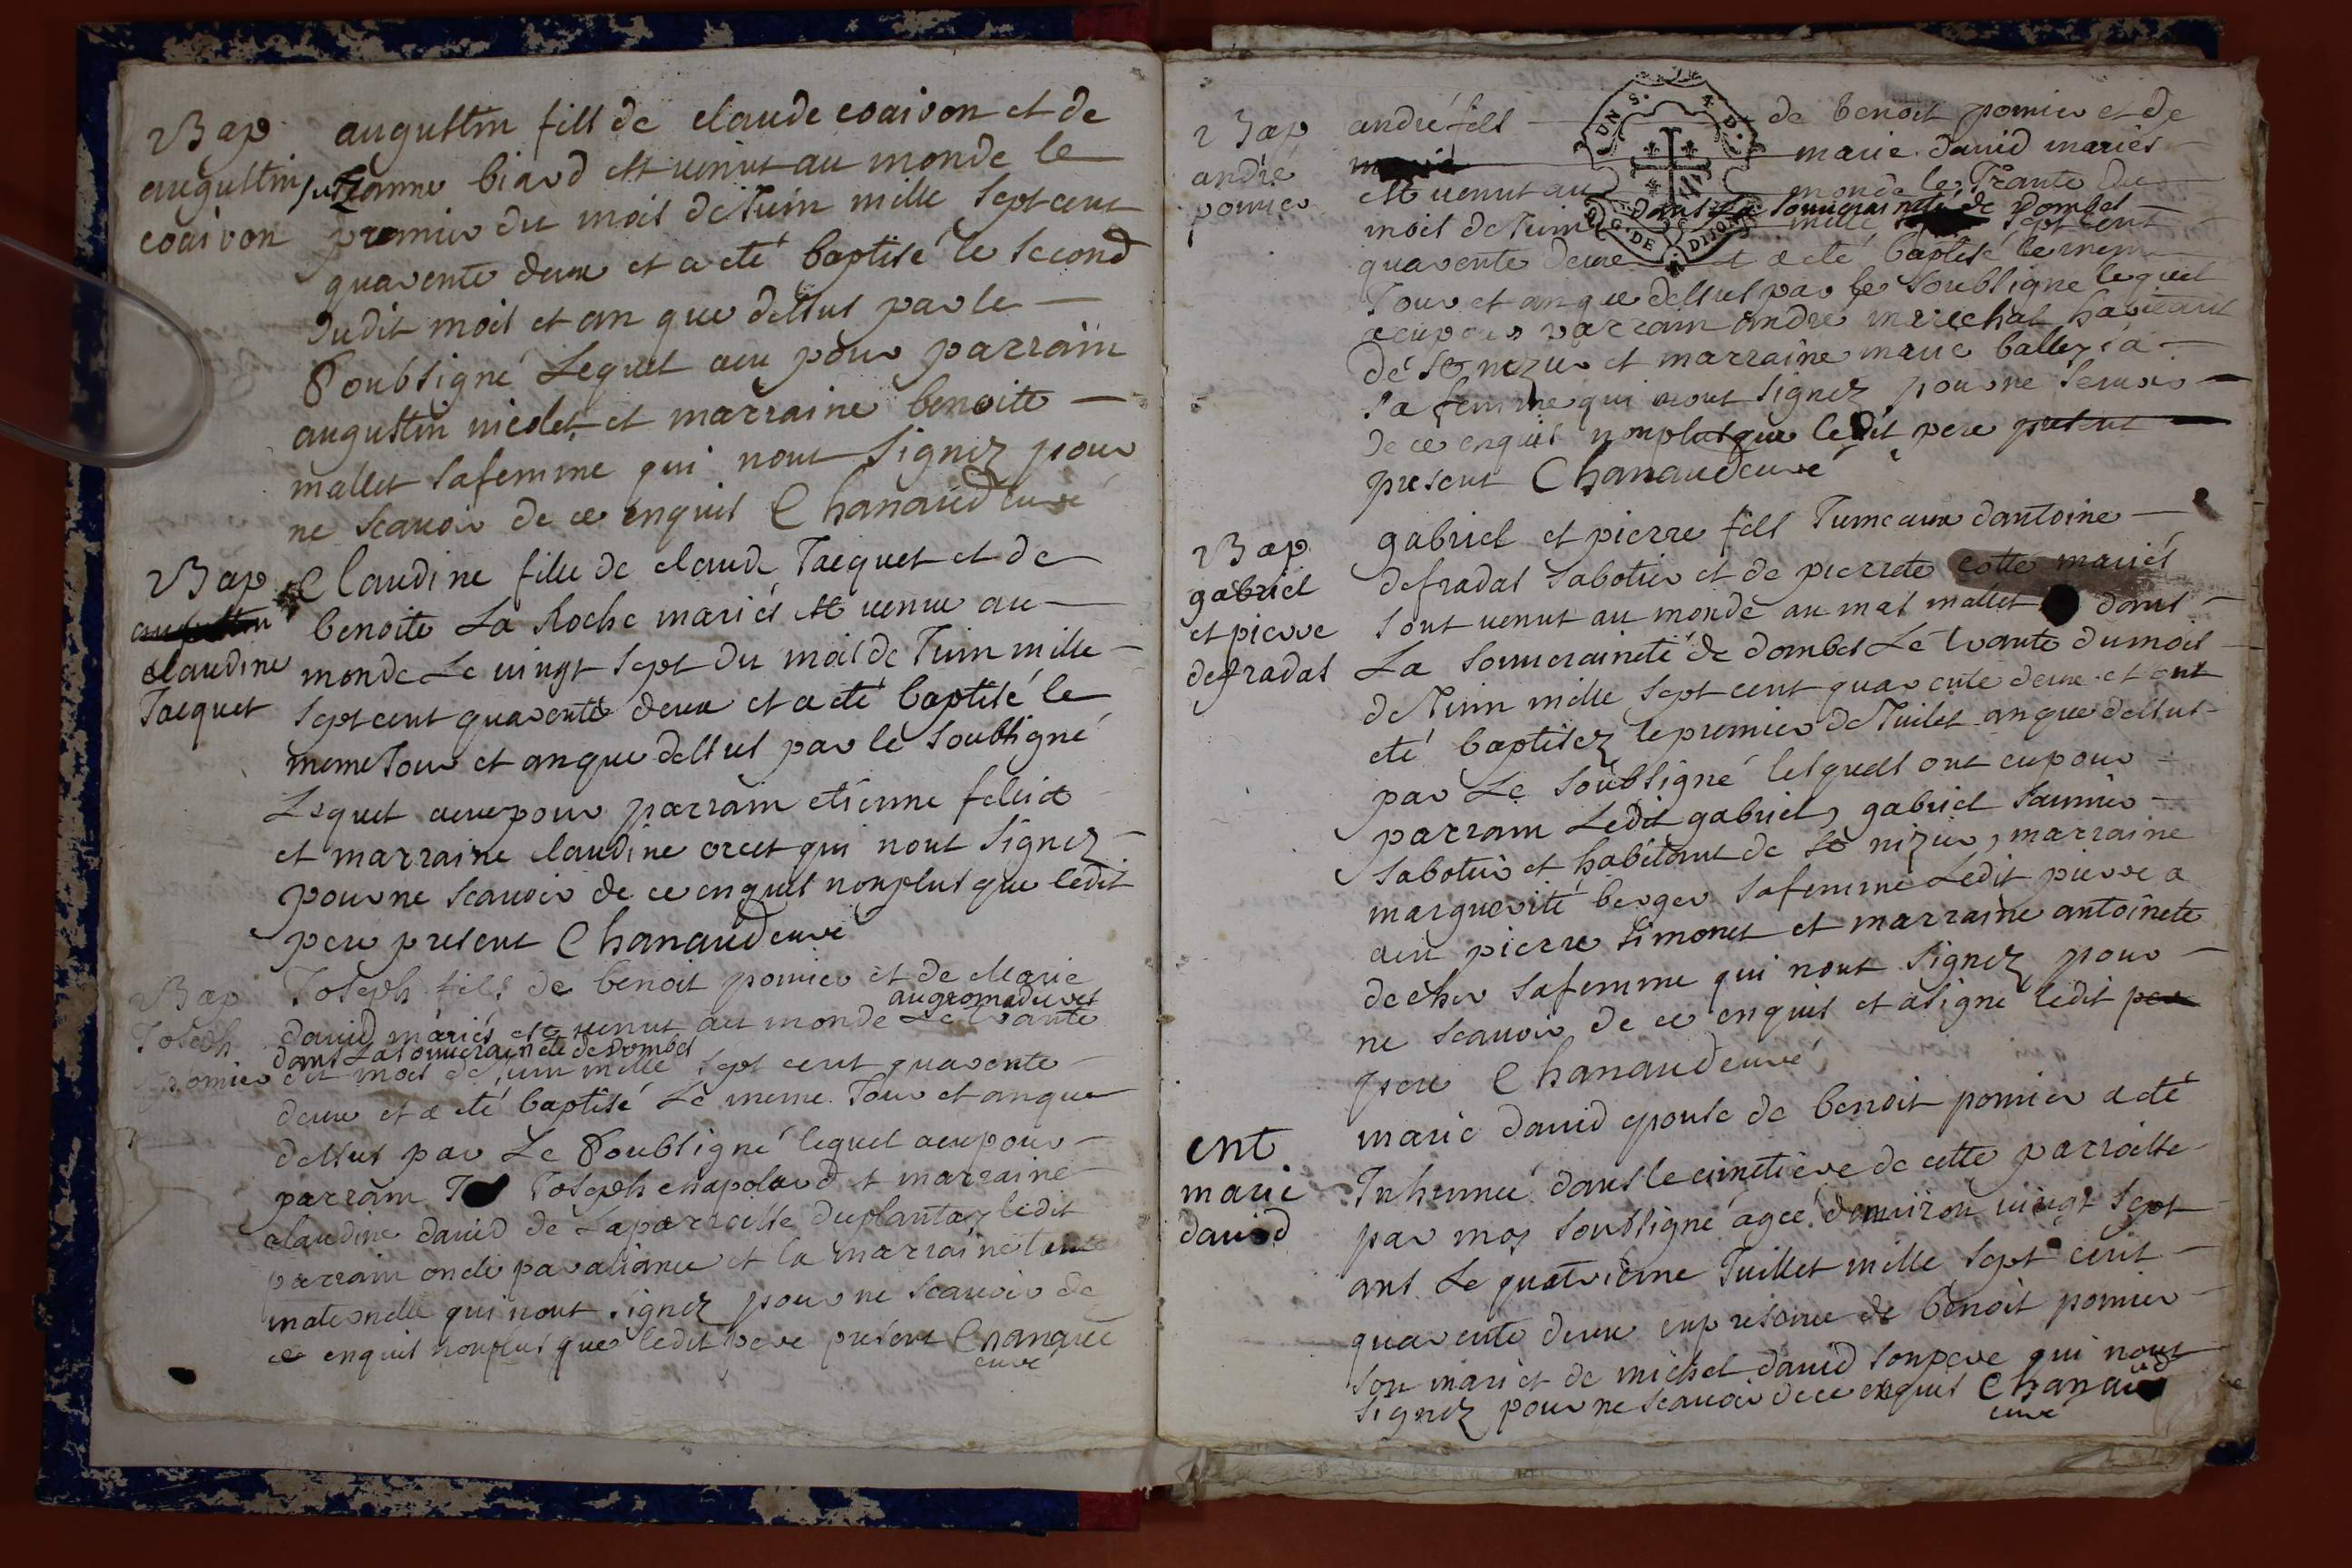 Bap
augustin
coaivon
augustin fils de claude coaivon et de
suzanne biard est venut au monde le
premier du mois de Juin mille sept cent
quarente deux et a eté baptisé le second
dudit mois et an que dessus par le
soubsigné Lequel a eu pour parrain
augustin nicolet et marraine benoite
mallet sa femme qui nont signez pour
ne scavoir de ce enquis Chanaud curé
Bap
claudine
Jacquet
Claudine fille de claude Jacquet et de
benoite La Roche mariés est venue au
monde Le vingt sept du mois de Juin mille
sept cent quarente deux et a eté baptisé le
meme Jour et an que dessus par le soubsigné
Lequel a eu pour parrain etienne
et marraine claudine qui nont signez
pour ne scavoir de ce enquis non plus que ledit
pere present Chanaud curé
Bap
Joseph
pomier
Joseph fils de benoit pomier et de Marie
david mariés est venut au monde Le trante
dans La souveraineté de dombes
du mois de juin mille sept cent quarente
deux et a eté baptisé Le meme Jour et an que
dessus par Le soubsigné lequel a eu pour
parrain Joseph chapoland et marraine
claudine david de La parroisse du plantay ledit
parrain oncle par aliance et la marraine tante
maternelle qui nont signez pour ne scavoir de
ce enquis non plus que ledit pere present Chanaud
curé
Bap
andré
pomier
andré fils de benoit pomier et de
marie david mariés
est venut au monde le Trante du
dans La souveraineté de Dombes
mois de Juin mille sept cent
quarente deux et a eté baptisé le meme
Jour et an que dessus par le soubsigné lequel
a eu pour parrain andré marechal havitant
de st nizier et marraine marie
sa femme qui nont signez pour ne scavoir
de ce enquis non plus que ledit pere present
present Chanaud curé
Bap
gabriel
et pierre
defradas
gabriel et pierre fils Jumeaux dantoine
defradas sabotier et de pierrete cotte mariés
sont venut au monde au mas mallet dans
La souveraineté de dombes Le trante du mois
de Juin mille sept cent quarente deux et ont
eté baptisez le premier de Juilet an que dessus
par Le soubsigné lesquels ont eu pour
parrain Ledit gabriel, gabriel saunier
sabotier et habitant de st nizier, marraine
marguerite berger sa femme Ledit pierre a
aeu pierre simonet et marraine antoinete
decher sa femme qui nont signez pour
ne scavoir de ce enquis et a signé ledit pere
pere Chanaud curé
ent
marie
david
marie david epouse de benoit pomier a eté
Inhumée dans le cimetiere de cette parroisse
par moy soubsigné agée denviron vingt sept
ans Le quatrieme Juillet mille sept cent
quarente deux en presence de benoit pomier
son mari et de michel david son pere qui nont
signez pour ne scavoir de ce enquis Chanaud
curé
G. DE DIJON